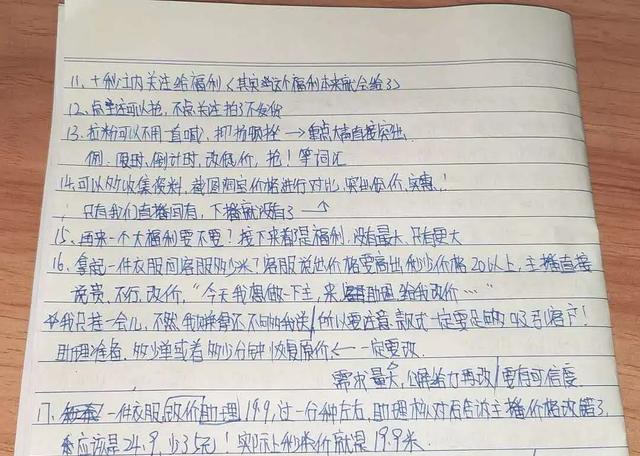 11、十秒之内关注给福利〈其实这个福利本来就会给了〉
12、点关注可以拍,不点关注拍了不发货
13、拉粉可以不用一直喊, → 重点大高直接突出
例:限时、倒计时、改低价,抢!等词汇
14、可以多收集资料,截图淘宝价格进行对比,突出低价、实惠!
只有我们直播间有,下播就没有了 →
15、再来一个大福利要不要?接下来都是福利,没有最大,只有更大
16、拿起一件衣服问客服多少米?客服说出价格要高出秒少价格20以上,主播直接
说贵、不行、改价,“今天我想做一下主,来 助理给我改价…”
☆我只挂一会儿,不然我赔得还不如我送/所以要注意,款式一定要足够吸引客户!
助理准备,多少单或者多少分钟恢复原价 ← 一定要改.
需求量大,公屏给力再改/要有可信度
17、一件衣服,改价助理19.9,过一分钟左右,助理核对后告诉主播价格改错了,
应该是24.9,少了5元!实际上秒杀价就是19.9米.